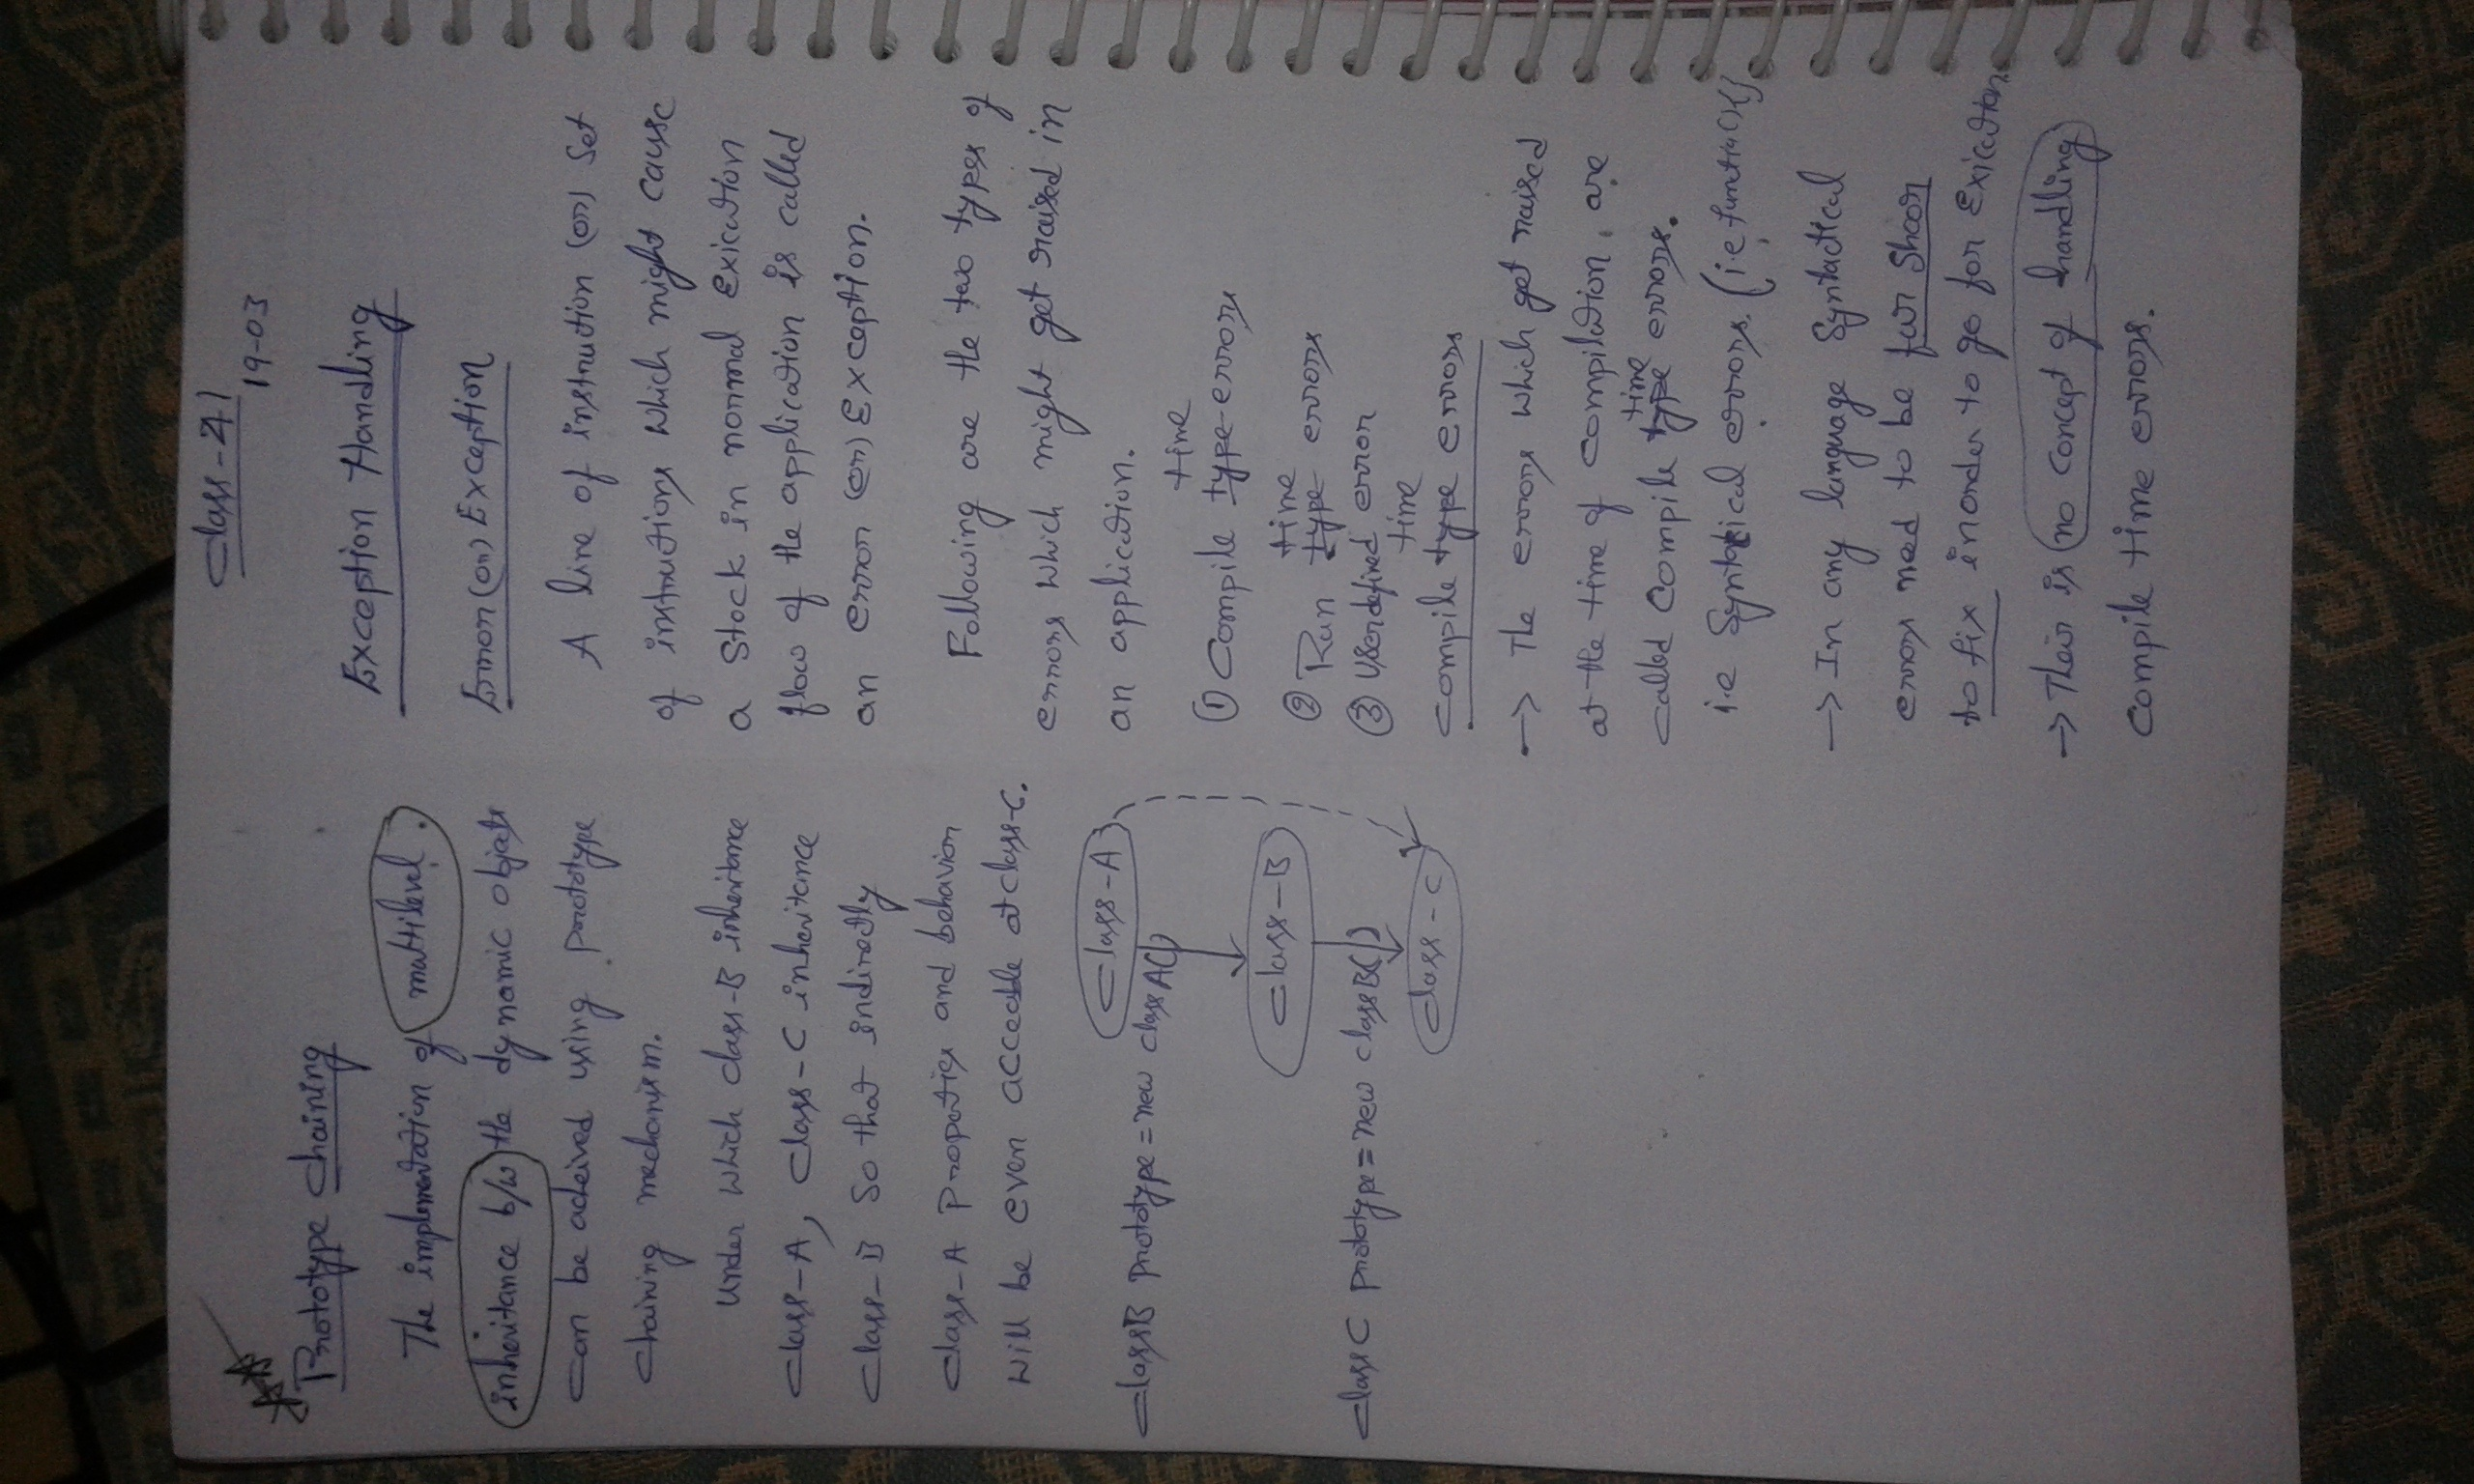 Prototype chaining
The implementation of multilevel.
inheritance b/w the dynamic objects
can be acheived using prototype
chaining mechanism.
under which class-B inheritance
class-A, class-C inheritance
class-B So that indirectly
class-A properties and behavior
will be even accecable at class-C.
class-A
classB prototype = new classA()
class-B
classC prototype = new classB()
class-C
class-41
19-03
Exception Handling
Error (or) Exception
A line of instruction (or) set
of instructions which might cause
a stock in normal Exicution
flow of the application is called
an error (or) Exception.
Following are the two types of
errors which might get raised in
an application.
① Compile type time errors
② Run type time errors
③ Userdefined error
Compile type time errors
→ The errors which get raised
at the time of compilation, are
called compile type time errors.
i.e Syntatical errors. (i.e function(){)
→ In any language Syntactical
errors need to be for Shor
to fix inorder to go for Exicution
→ Their is no concept of handling
compile time errors.